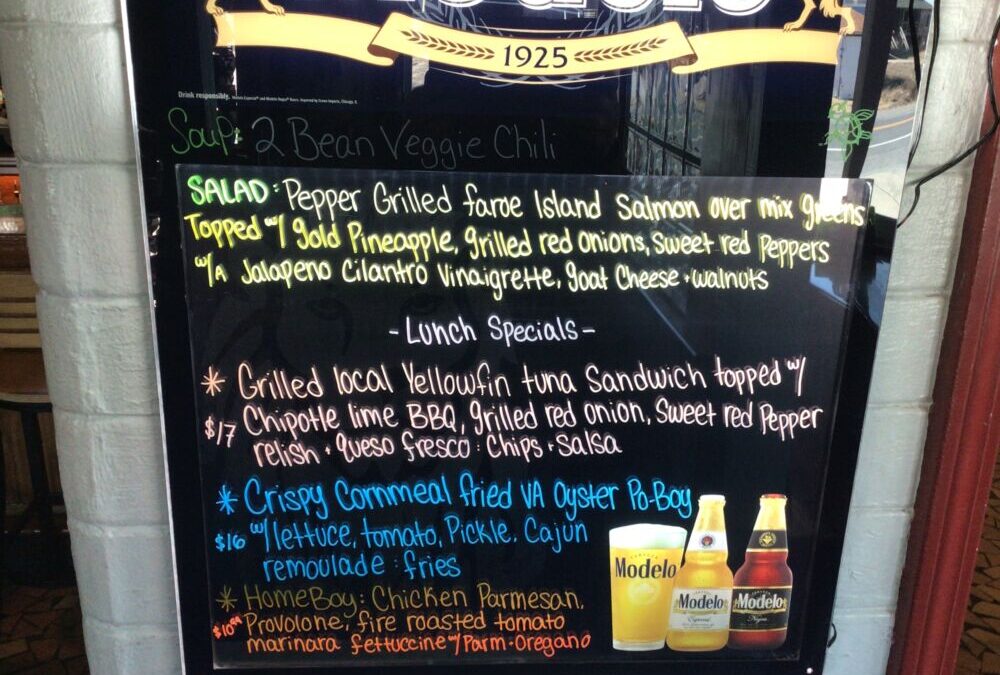 1925
Drink responsibly.
Soup: 2 Bean Veggie Chili
SALAD: Pepper Grilled faroe Island Salmon over mix greens
Topped w/ gold Pineapple, grilled red onions, Sweet red Peppers
w/A Jalapeno Cilantro Vinaigrette, goat Cheese + walnuts
- Lunch Specials -
* Grilled local Yellowfin tuna Sandwich topped w/
$17 Chipotle lime BBQ, grilled red onion, Sweet red Pepper
relish + queso fresco : Chips + Salsa
* Crispy Cornmeal fried VA Oyster Po-Boy
$16 w/ lettuce, tomato, Pickle. Cajun
remoulade : fries
* HomeBoy: Chicken Parmesan,
Provolone, fire roasted tomato
marinara fettuccine w/ Parm-Oregano
Modelo
Modelo
Especial
Modelo
Negra